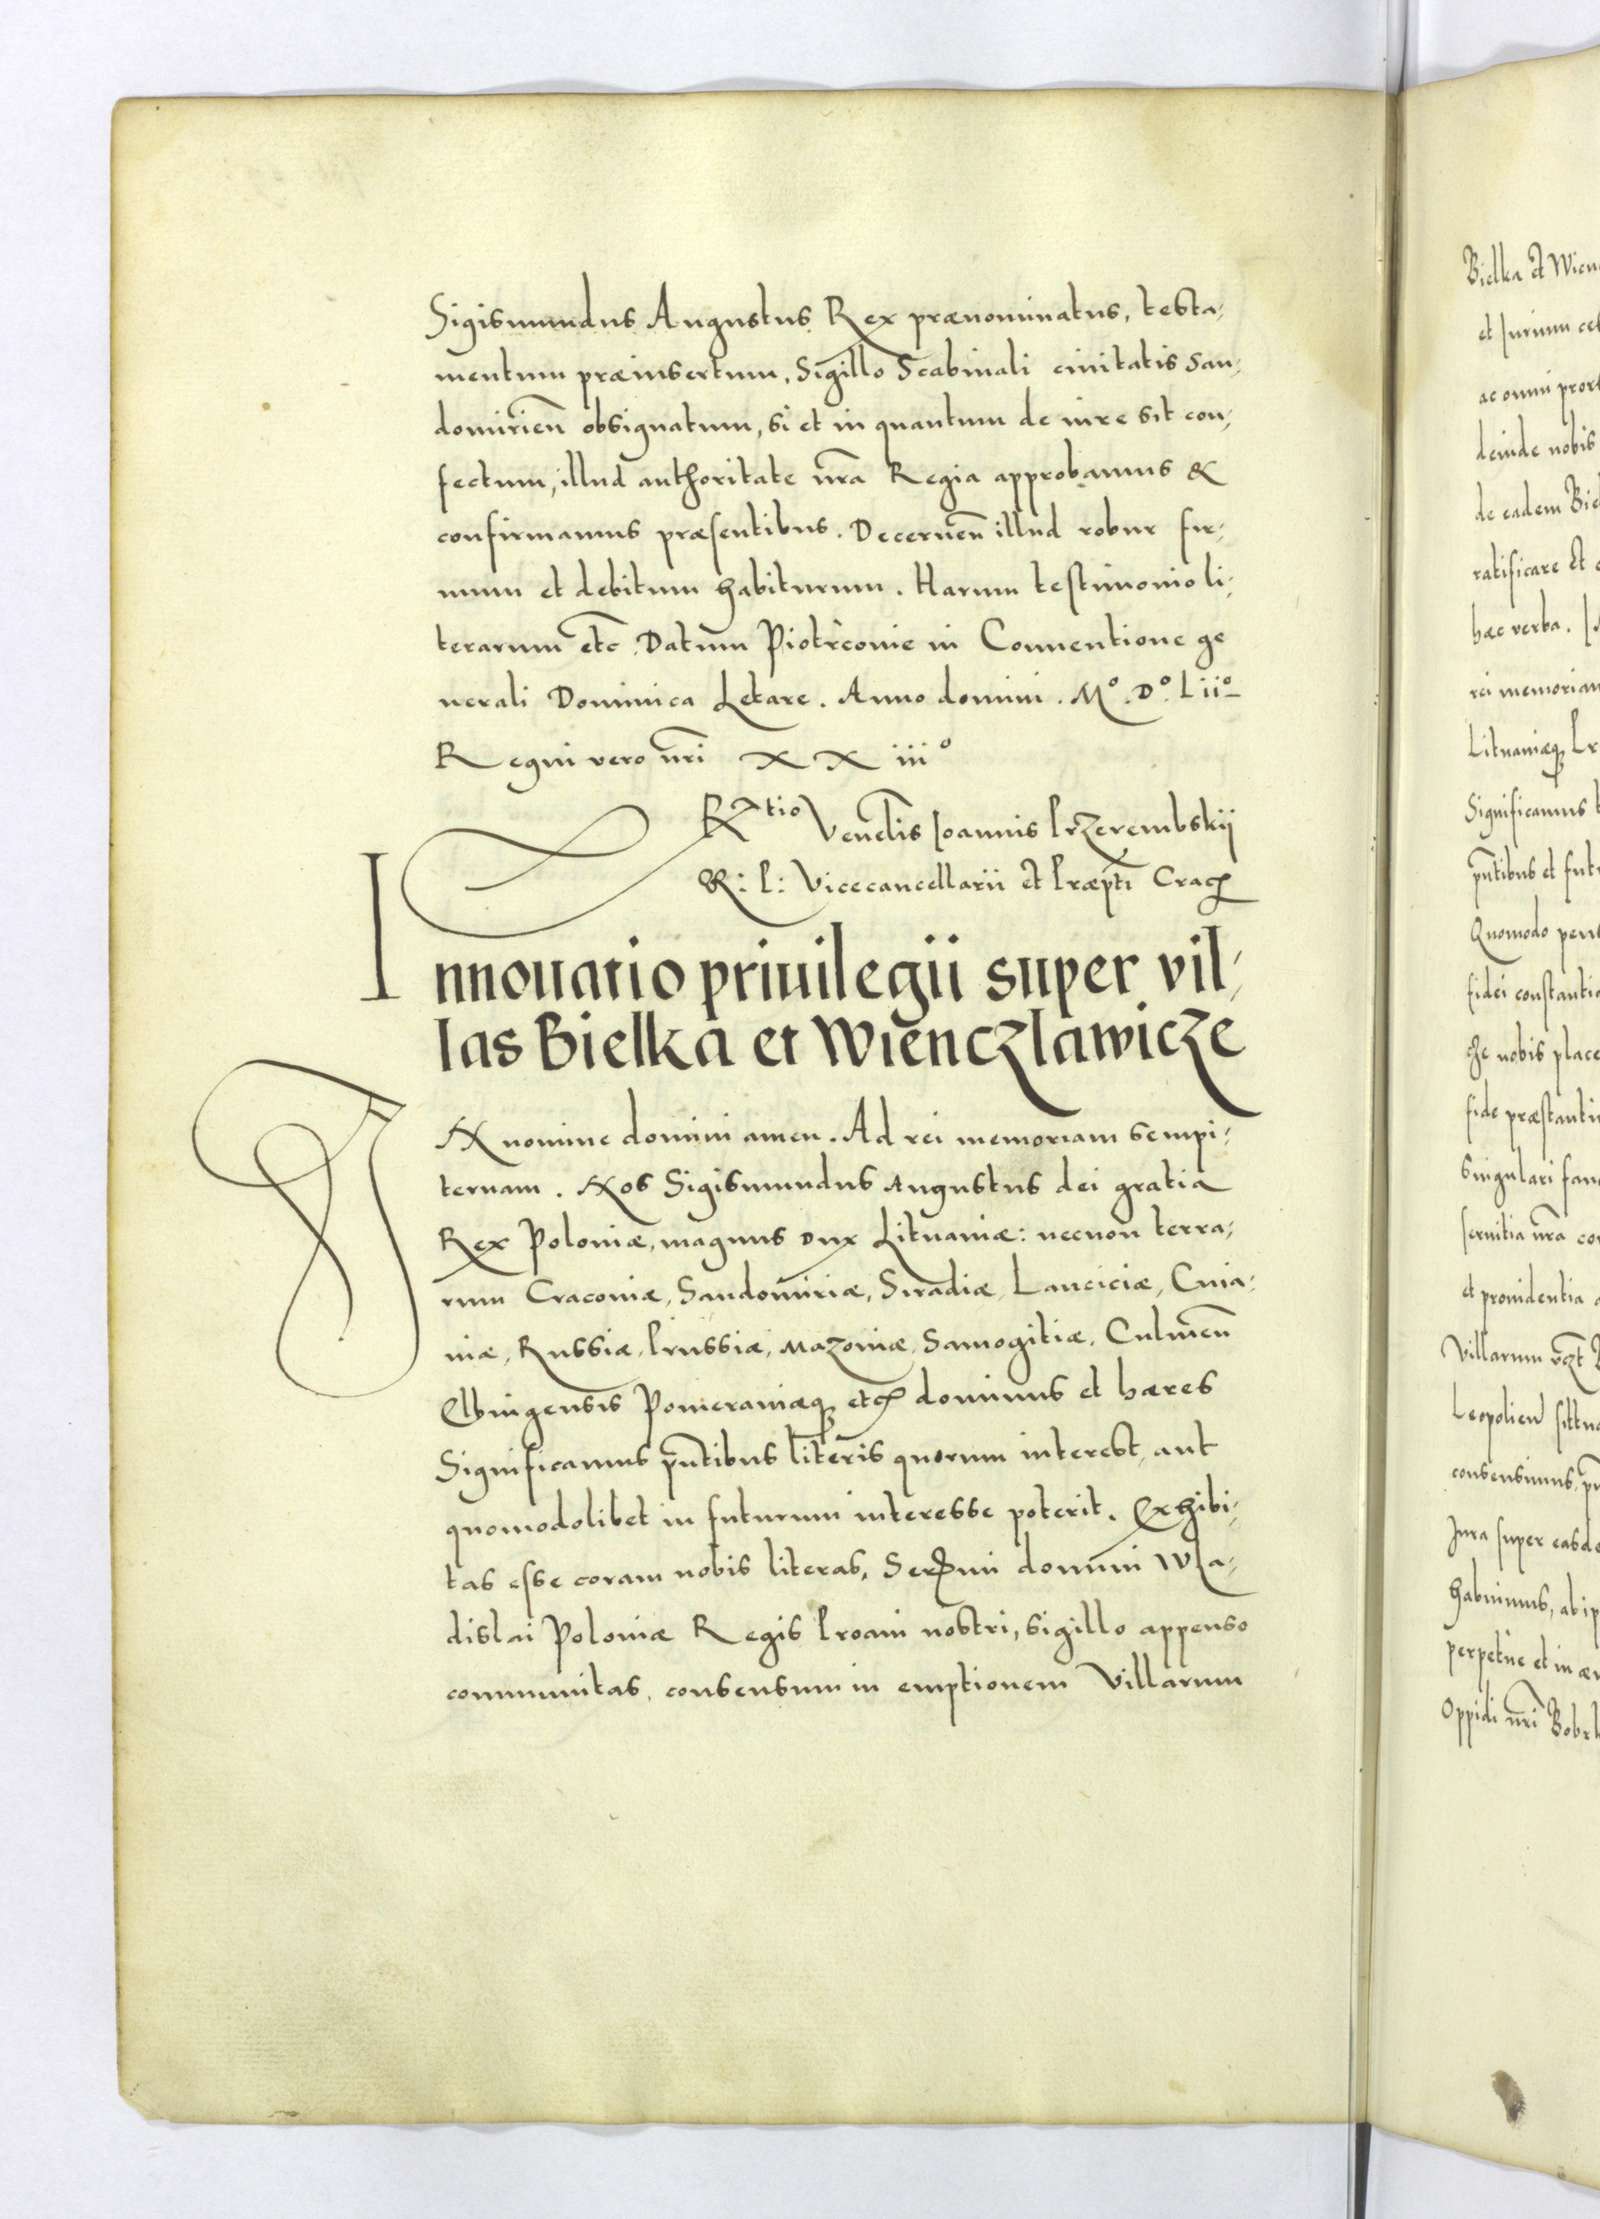 Sigismundus Augustus Rex prænominatus, testa-
mentum præinsertum, Sigillo Scabinali ciuitatis San-
domirieñ obsignatum, si et in quantum de iure sit con-
fectum, illud authoritate nr̃a Regia approbamus &
confirmamus præsentibus. Decerneñ illud robur fir-
mum et debitum habiturum. Harum testimonio li-
terarum etc̃ Datum Piotrconie in Conuentione ge
nerali Dominica Letare. Anno domini. Mº. Dº. Liiº
Regni vero nr̃i XXiiiº
R̃tio Veneĩlis Ioannis Przerembskij
R: P: Vicecancellarii et Præpti Crac
Innouatio priuilegii super vil-
las Bielka et Wienczlawicze
IN nomine domini amen. Ad rei memoriam sempi-
ternam. Nos Sigismundus Augustus dei gratia
Rex Poloniæ, magnus Dux Lituaniæ: necnon terra-
rum Cracouiæ, Sandomiriæ, Siradiæ, Lanciciæ, Cuia-
uiæ, Russiæ, Prussiæ, Mazouiæ, Samogitiæ, Culmeñ
Elbingensis Pomeraniæq etc dominus et hæres
Significamus pñtibus literis quorum interest, aut
quomodolibet in futurum interesse poterit. Exhibi-
tas esse coram nobis literas, Sermi domini Wla-
dislai Poloniæ Regis Proaui nostri, sigillo appenso
communitas, consensum in emptionem Villarum
Bielka et Wien
et Iurium
ac omni
deinde nobis
de eadem
ratificare et
hæc verba.
rei memoriam
Lituaniæq
Significamus
pñtibus et
Quomodo
fidei
nobis
fide
Singulari
seruitia nr̃a
et prouidentia
Villarum
Leopolien
consensimus,
Iura super
habuimus,
perpetue et in
Oppidi nr̃i